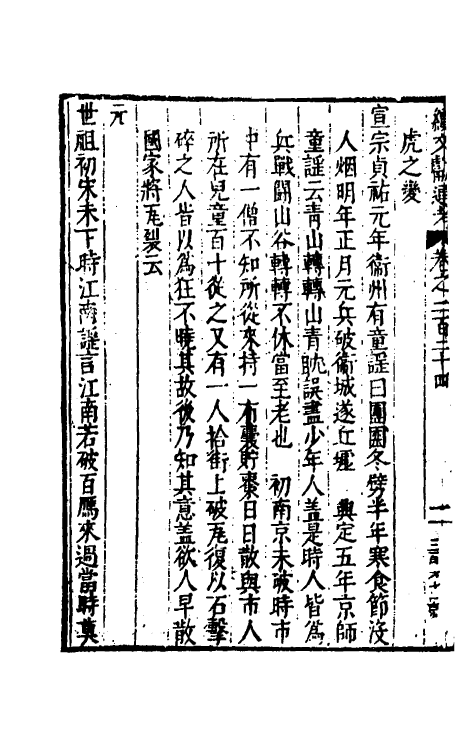 續文獻通考 卷之二百二十四
虎之變
宣宗貞祐元年衞州有童謠曰團團冬劈半年寒食節没
人烟明年正月元兵破衞城遂丘墟 興定五年京師
童謠云青山轉轉山青眈誤盡少年人盖是時人皆爲
兵戰鬪山谷轉轉不休當至老也 初南京未破時市
中有一僧不知所從來持一布囊貯棗日日散與市人
所在兒童百十從之又有一人拾街上破瓦復以石擊
碎之人皆以爲狂不曉其故後乃知其意盖欲人早散
國家將瓦裂云
元
世祖初宋未下時江南謠言江南若破百鴈來過當時莫